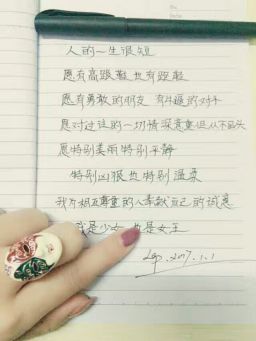 人的一生很短
愿有高跟鞋也有跑鞋
愿有勇敢的朋友 有牛逼的对手
愿对过往的一切情深意重但从不回头
愿特别美丽特别平静
特别凶狠也特别温柔
我为相互尊重的人奉献自己的诚意
我是少女 也是女王
2017.1.1